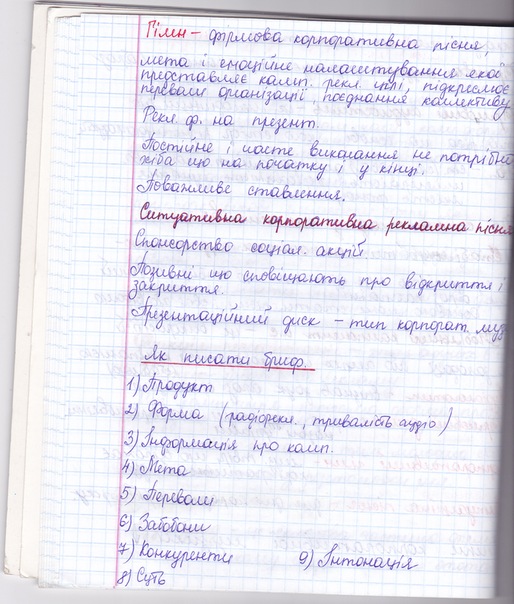 Гімн – фірмова корпоративна пісня,
мета і емоційне налаштування якої
представляє камп. рекл. цілі, підкреслює
переваги організації, поєднання коллективу
Рекл. ф. на презент.
Постійне і часте виконання не потрібно
хіба що на початку і у кінці.
Поважливе ставлення.
Ситуативна корпоративна рекламна пісня
Спонсорство соціал. акцій
Позивні що сповіщають про відкриття і
закриття.
Презентаційний диск – тип корпорат. муз
Як писати бриф.
1) Продукт
2) Форма (радіорекл., тривалість аудіо)
3) Інформація про комп.
4) Мета
5) Переваги
6) Забобони
7) Конкуренти 9) Інтонація
8) Суть